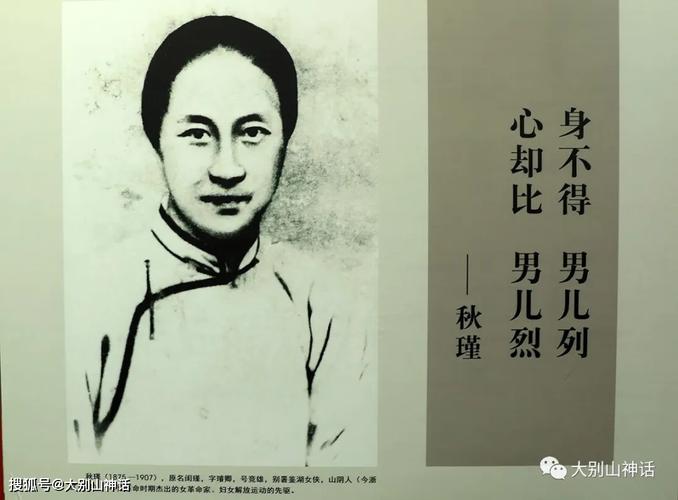 身不得 男儿列
心却比 男儿烈
——秋瑾
秋瑾（1875—1907），原名闺瑾，字璿卿，号竞雄，别署鉴湖女侠，山阴人（今浙
命时期杰出的女革命家、妇女解放运动的先驱。
搜狐号@大别山神话
大别山神话